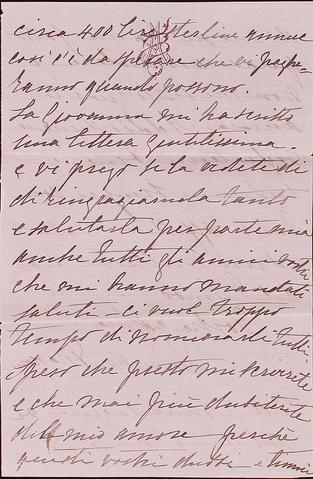 circa 400 Lire Sterline annue
così c'è da sperare che vi paghe-
ranno quando possono.
La Giovanna mi ha scritto
una lettera gentilissima -
e vi prego se la vedete di
di ringraziarla tanto
e salutarla per parte mia
anche tutti gli amici vostri
che mi hanno mandati
saluti - ci vuol troppo
tempo di nominarli tutti
spero che presto mi scriverete
e che mai più dubiterete
del mio amore perchè
questi vostri dubbi e timori